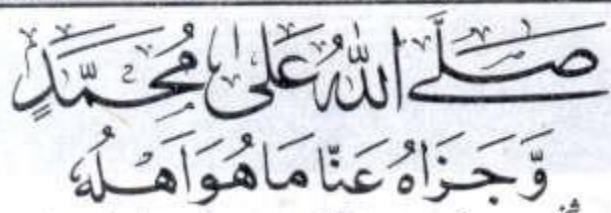 صَلَّی اللهُ عَلٰی مُحَمَّدٍ
وَّ جَزَاهُ عَنَّا مَا هُوَ اَهْلُهٗ